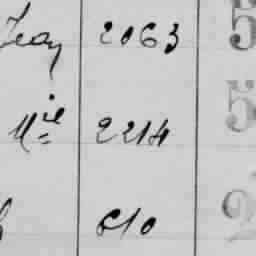 Jean 2063 5
Mie 2214 5
610 2